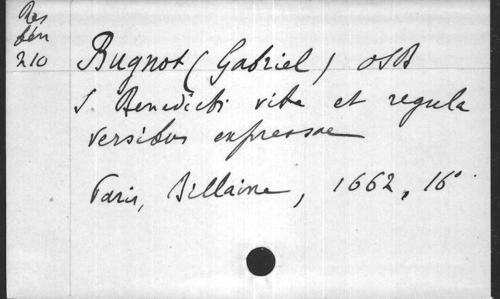 Res
bén
210
Bugnot (Gabriel) OSB
S Benedicti vita et regula
versibus expressae
Paris, Billaine, 1662, 16°